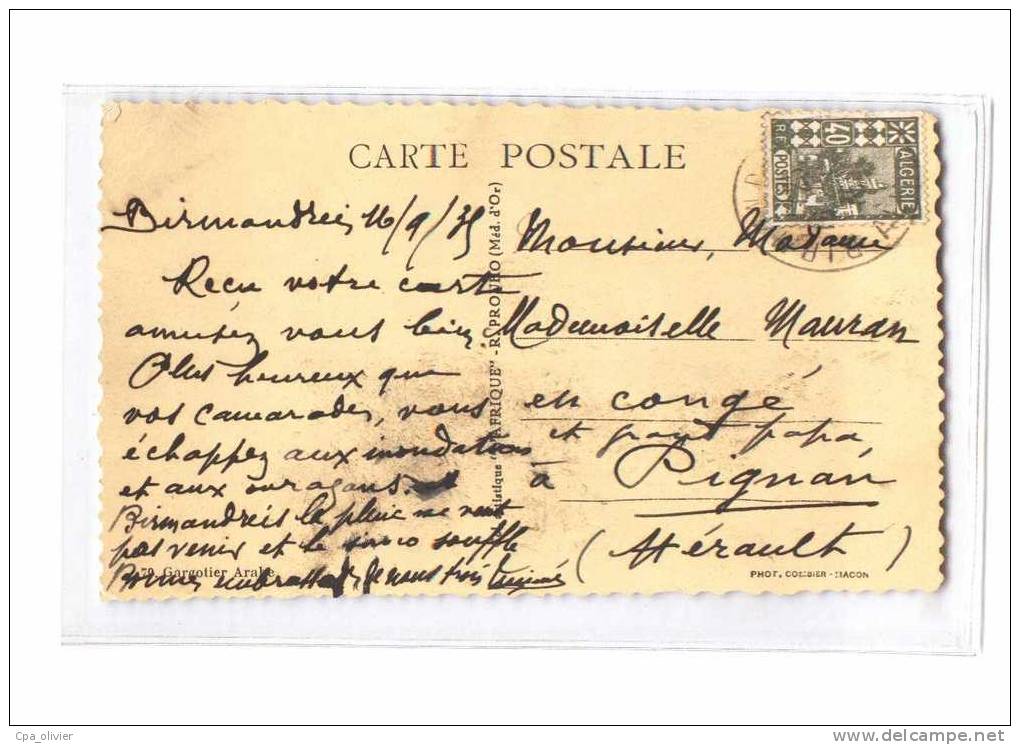 CARTE POSTALE
ALGERIE
40
RF POSTES
Birmandreis 16/9/35
Reçu votre carte
amusez vous bien.
Plus heureux que
vos camarades, vous
échappez aux inondations
et aux ouragans.
Birmandreis la pluie ne veut
pas venir et le siroco souffle
Bonnes embrassades de nous trois
79 Gargotier Arabe
"AFRIQUE" - REPROURO (Méd. d'Or)
Monsieur, Madame
Mademoiselle Mauran
en congé
et papa
à Pignan
(Hérault)
PHOT. COMBIER - MACON
Cpa_olivier
www.delcampe.net